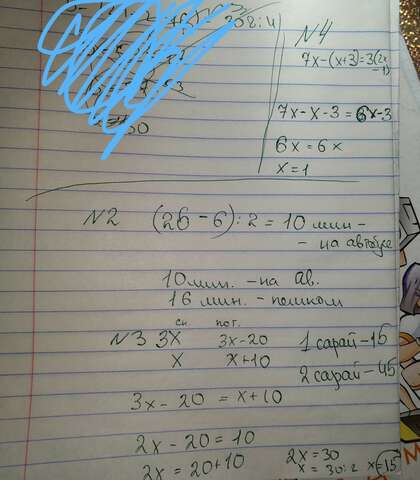 30 : 4
50
N4
7x-(x+3)=3(2x
-1)
7x-x-3 = 6x-3
6x = 6x
x = 1
N2 (26-6):2 = 10 мин -
- на автобусе
10 мин. - на ав.
16 мин. - пешком
сн. пот.
N3 3x 3x-20 1 сарай-15
x x+10 2 сарай-45
3x-20 = x+10
2x-20 = 10
2x = 20+10
2x = 30
x = 30:2 x=15